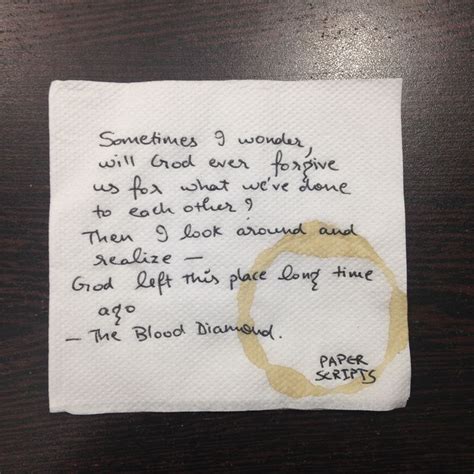 Sometimes I wonder,
will God ever forgive
us for what we've done
to each other?
Then I look around and
realize —
God left this place long time
ago
— The Blood Diamond.
PAPER
SCRIPTS